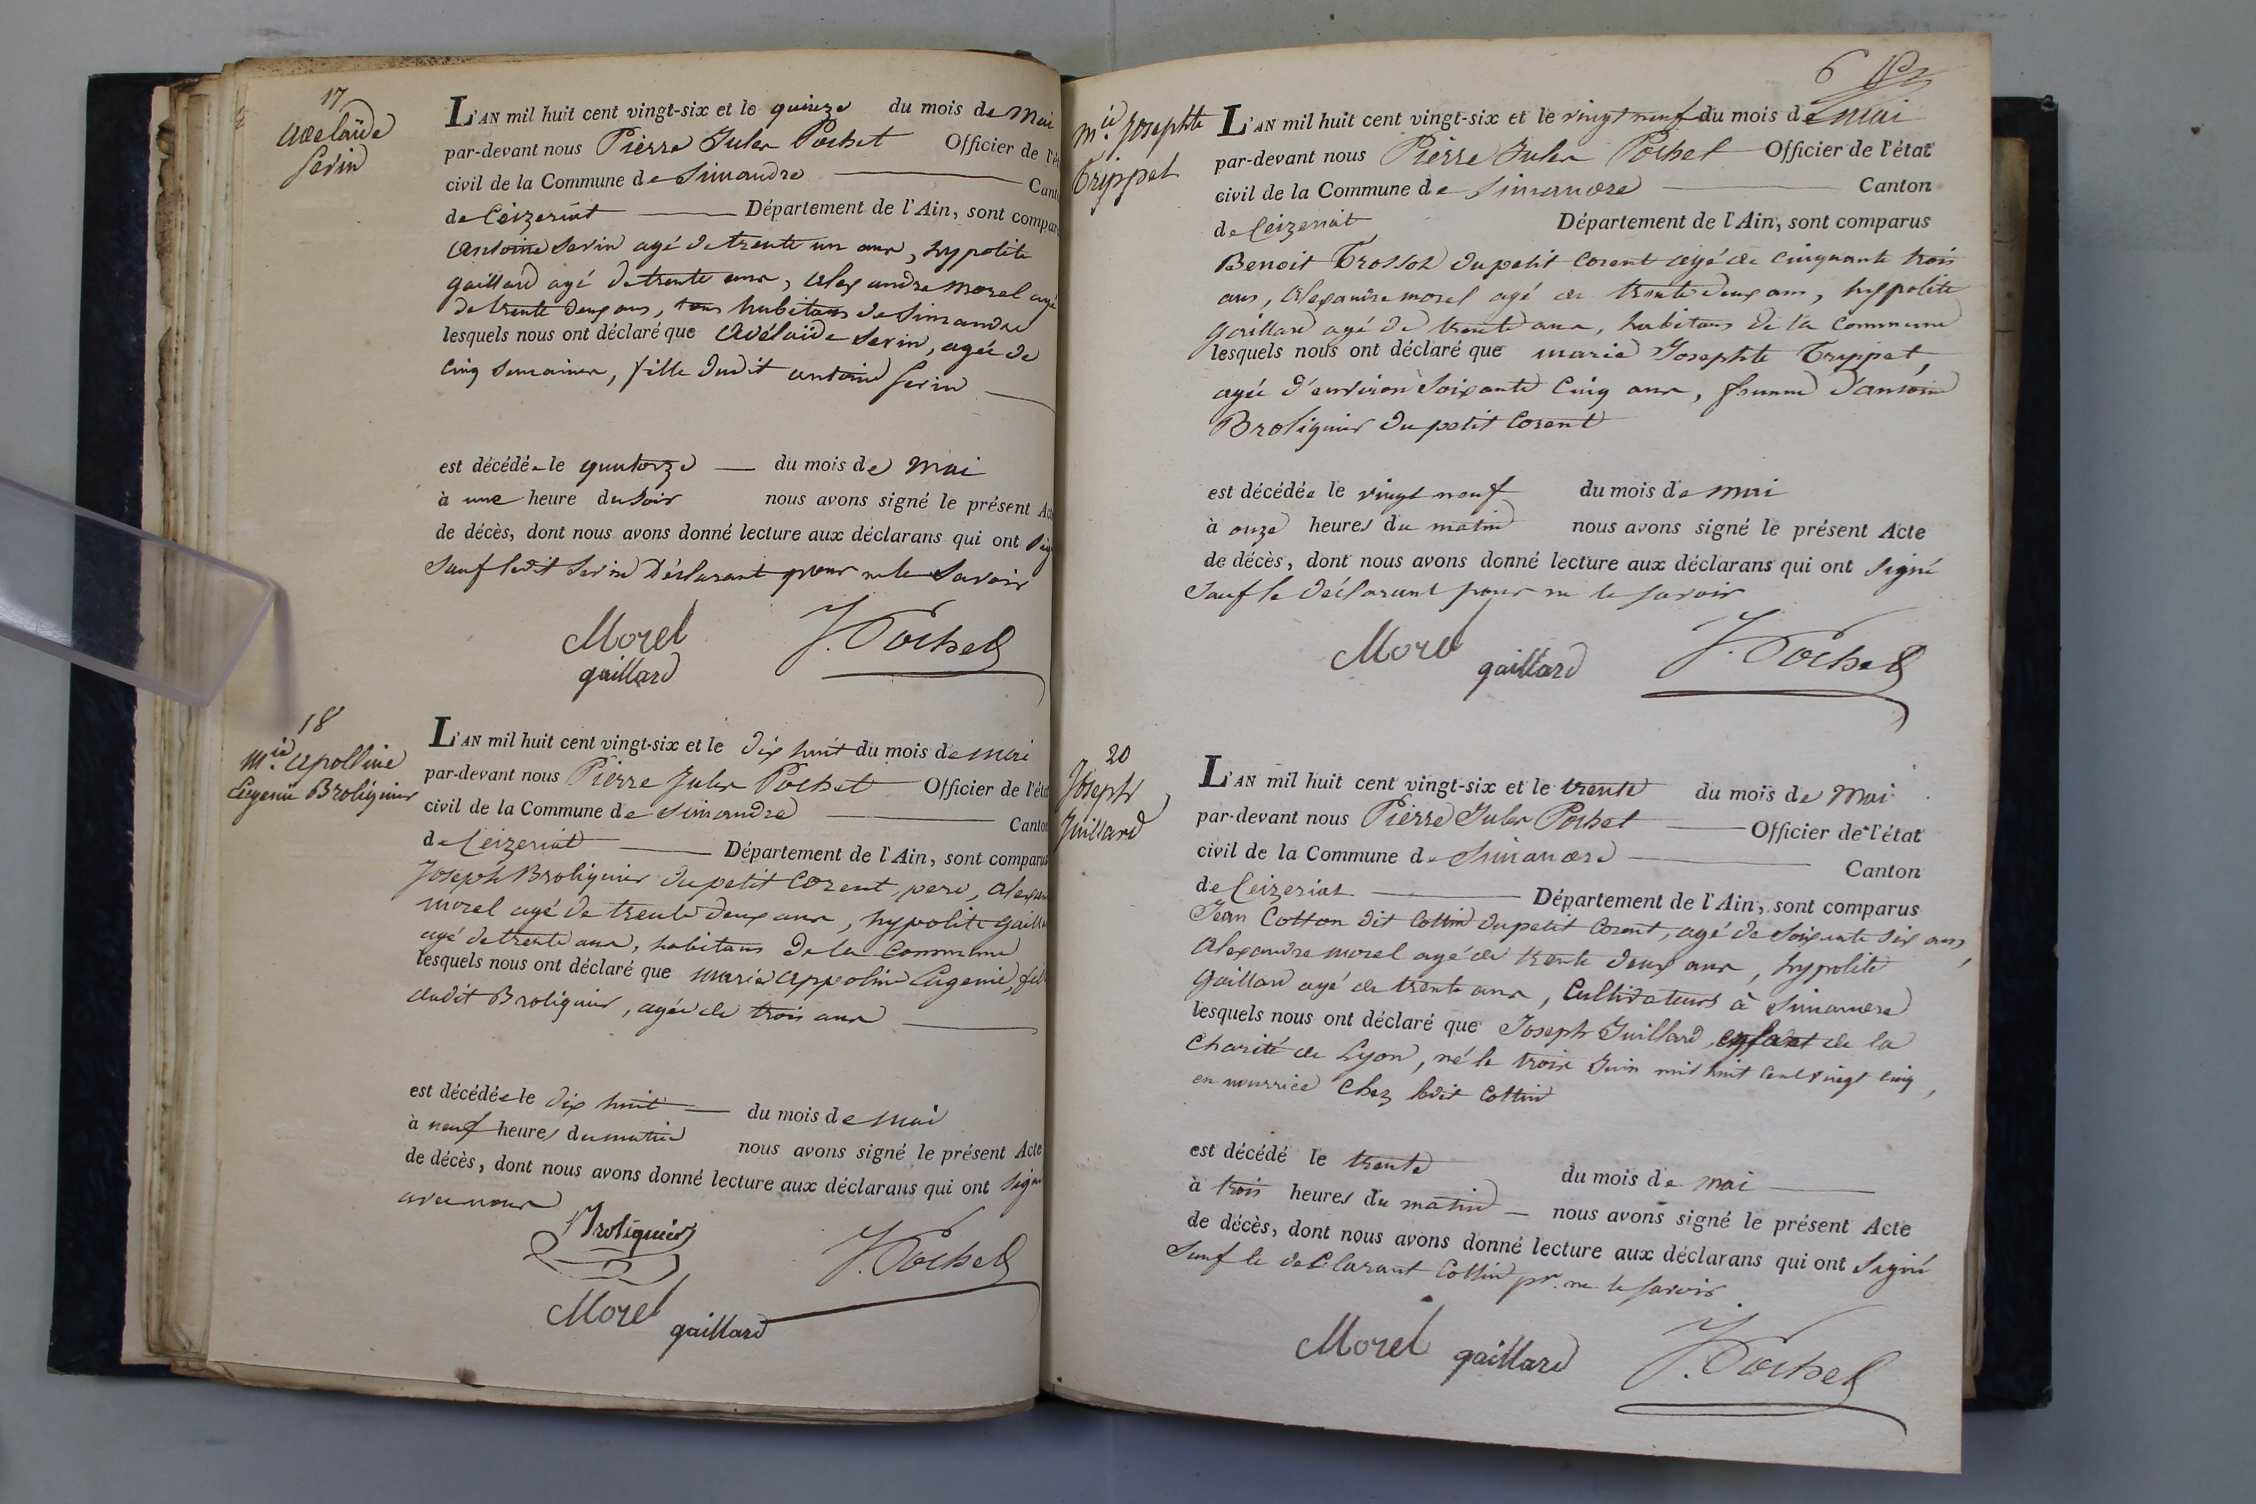 17
adelaïde
Serin
L'AN mil huit cent vingt-six et le quinze du mois de Mai
par-devant nous Pierre Jules Pochet Officier de l'ét
civil de la Commune de Simandre Cant
de Ceizeriat Département de l'Ain, sont compar
Antoine Serin agé de trente un ans, hypolite
gaillard agé de trente ans, alexandre morel agé
de trente deux ans, tous habitans de Simandre
lesquels nous ont déclaré que adélaïde Serin, agée de
cinq Semaines, fille dudit antoine Serin
est décédée le quatorze du mois de Mai
à une heure du Soir nous avons signé le présent Ac
de décès, dont nous avons donné lecture aux déclarans qui ont Sig
Sauf ledit Serin Déclarant pour ne le Savoir
Morel
J. Pochet
gaillard
18
Mie apolline
Eugenie Broliquier
L'AN mil huit cent vingt-six et le dix huit du mois de mai
par-devant nous Pierre Jules Pochet Officier de l'état
civil de la Commune de Simandre Canton
de Ceizeriat Département de l'Ain, sont comparus
Joseph Broliquier du petit Corent, pere, alexan
morel agé de trente deux ans, hypolite gaill
agé de trente ans, habitans de la Commune
lesquels nous ont déclaré que marie appolin Eugenie, fil
dudit Broliquier, agée de trois ans
est décédée le dix huit du mois de mai
à neuf heures du matin nous avons signé le présent Acte
de décès, dont nous avons donné lecture aux déclarans qui ont Sign
avec nous
Broliquier
J. Pochet
Morel
gaillard
6
Mie Josephte
Trippet
L'AN mil huit cent vingt-six et le vingt neuf du mois de mai
par-devant nous Pierre Jules Pochet Officier de l'état
civil de la Commune de Simandre Canton
de Ceizeriat Département de l'Ain, sont comparus
Benoit Trossot du petit Corent agé de cinquante trois
ans, alexandre morel agé de trente deux ans, hyppolite
gaillard agé de trente ans, habitans de la Commune
lesquels nous ont déclaré que marie Josephte Trippet,
agée d'environ Soixante Cinq ans, femme d'antoine
Broliquier du petit Corent
est décédée le vingt neuf du mois de mai
à onze heures du matin nous avons signé le présent Acte
de décès, dont nous avons donné lecture aux déclarans qui ont Signé
Sauf le Déclarant pour ne le Savoir
Morel
gaillard
J. Pochet
20
Joseph
Juillard
L'AN mil huit cent vingt-six et le trente du mois de Mai
par-devant nous Pierre Jules Pochet Officier de l'état
civil de la Commune de Simandre Canton
de Ceizeriat Département de l'Ain, sont comparus
Jean Cotton dit Cottin du petit Corent, agé de Soixante dix ans,
alexandre morel agé de trente deux ans, hypolite
gaillard agé de trente ans, Cultivateurs à Simandre
lesquels nous ont déclaré que Joseph Juillard, enfant de la
Charité de Lyon, né le trois Juin mil huit cent vingt cinq,
en nourrice Chez ledit Cottin
est décédé le trente du mois de mai
à trois heures du matin nous avons signé le présent Acte
de décès, dont nous avons donné lecture aux déclarans qui ont Signé
Sauf le déClarant Cottin pr. ne le Savoir
Morel
gaillard
J. Pochet